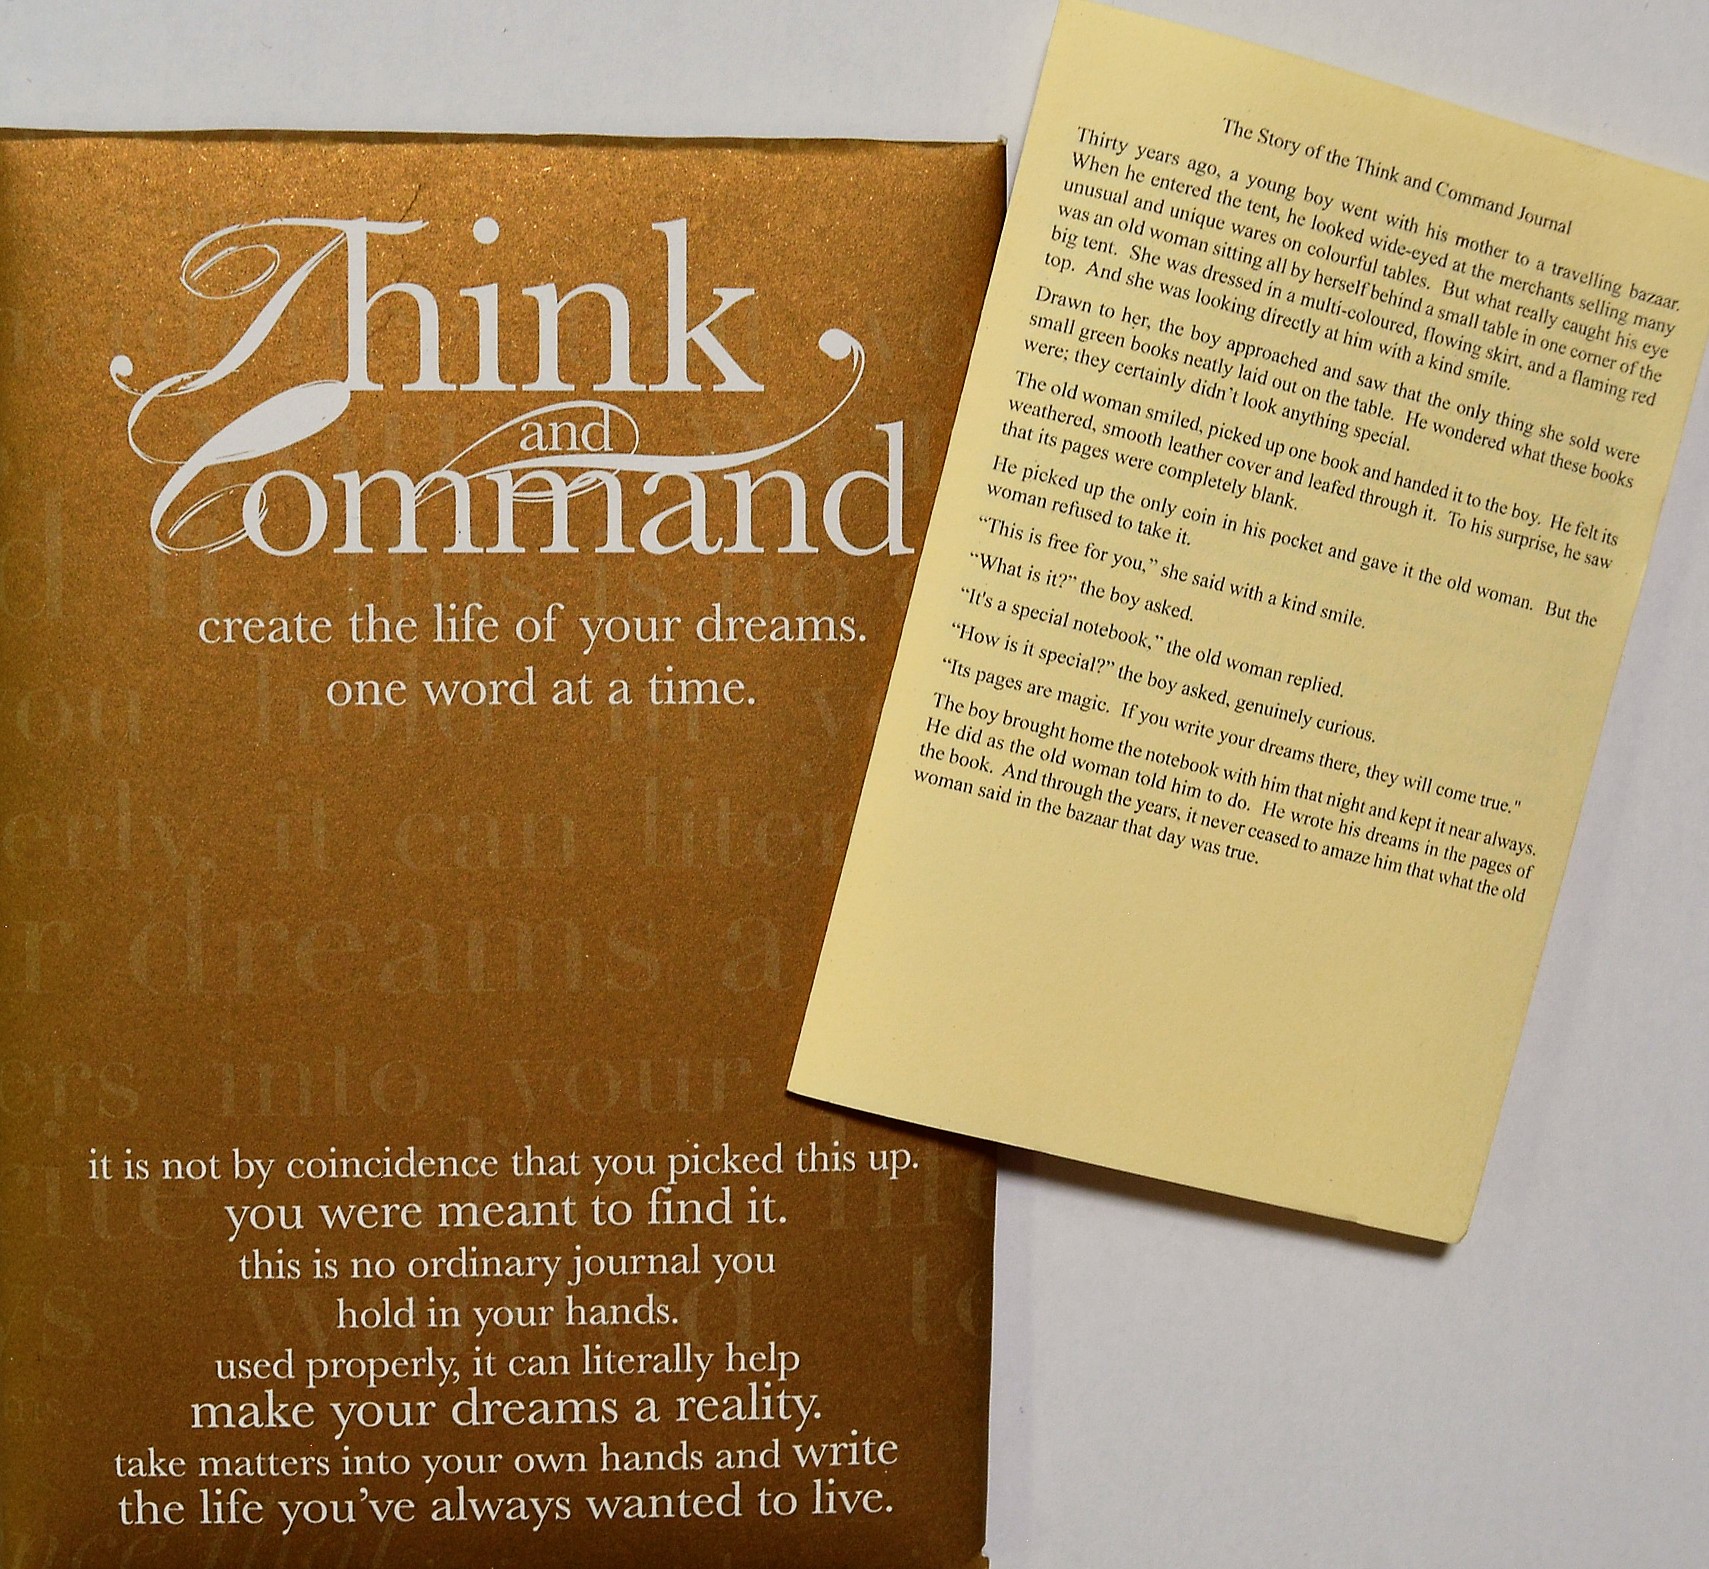 Think
and
Command
create the life of your dreams.
one word at a time.
it is not by coincidence that you picked this up.
you were meant to find it.
this is no ordinary journal you
hold in your hands.
used properly, it can literally help
make your dreams a reality.
take matters into your own hands and write
the life you've always wanted to live.
The Story of the Think and Command Journal
Thirty years ago, a young boy went with his mother to a travelling bazaar.
When he entered the tent, he looked wide-eyed at the merchants selling many
unusual and unique wares on colourful tables. But what really caught his eye
was an old woman sitting all by herself behind a small table in one corner of the
big tent. She was dressed in a multi-coloured, flowing skirt, and a flaming red
top. And she was looking directly at him with a kind smile.
Drawn to her, the boy approached and saw that the only thing she sold were
small green books neatly laid out on the table. He wondered what these books
were; they certainly didn't look anything special.
The old woman smiled, picked up one book and handed it to the boy. He felt its
weathered, smooth leather cover and leafed through it. To his surprise, he saw
that its pages were completely blank.
He picked up the only coin in his pocket and gave it the old woman. But the
woman refused to take it.
“This is free for you,” she said with a kind smile.
“What is it?” the boy asked.
“It's a special notebook,” the old woman replied.
“How is it special?” the boy asked, genuinely curious.
“Its pages are magic. If you write your dreams there, they will come true."
The boy brought home the notebook with him that night and kept it near always.
He did as the old woman told him to do. He wrote his dreams in the pages of
the book. And through the years, it never ceased to amaze him that what the old
woman said in the bazaar that day was true.